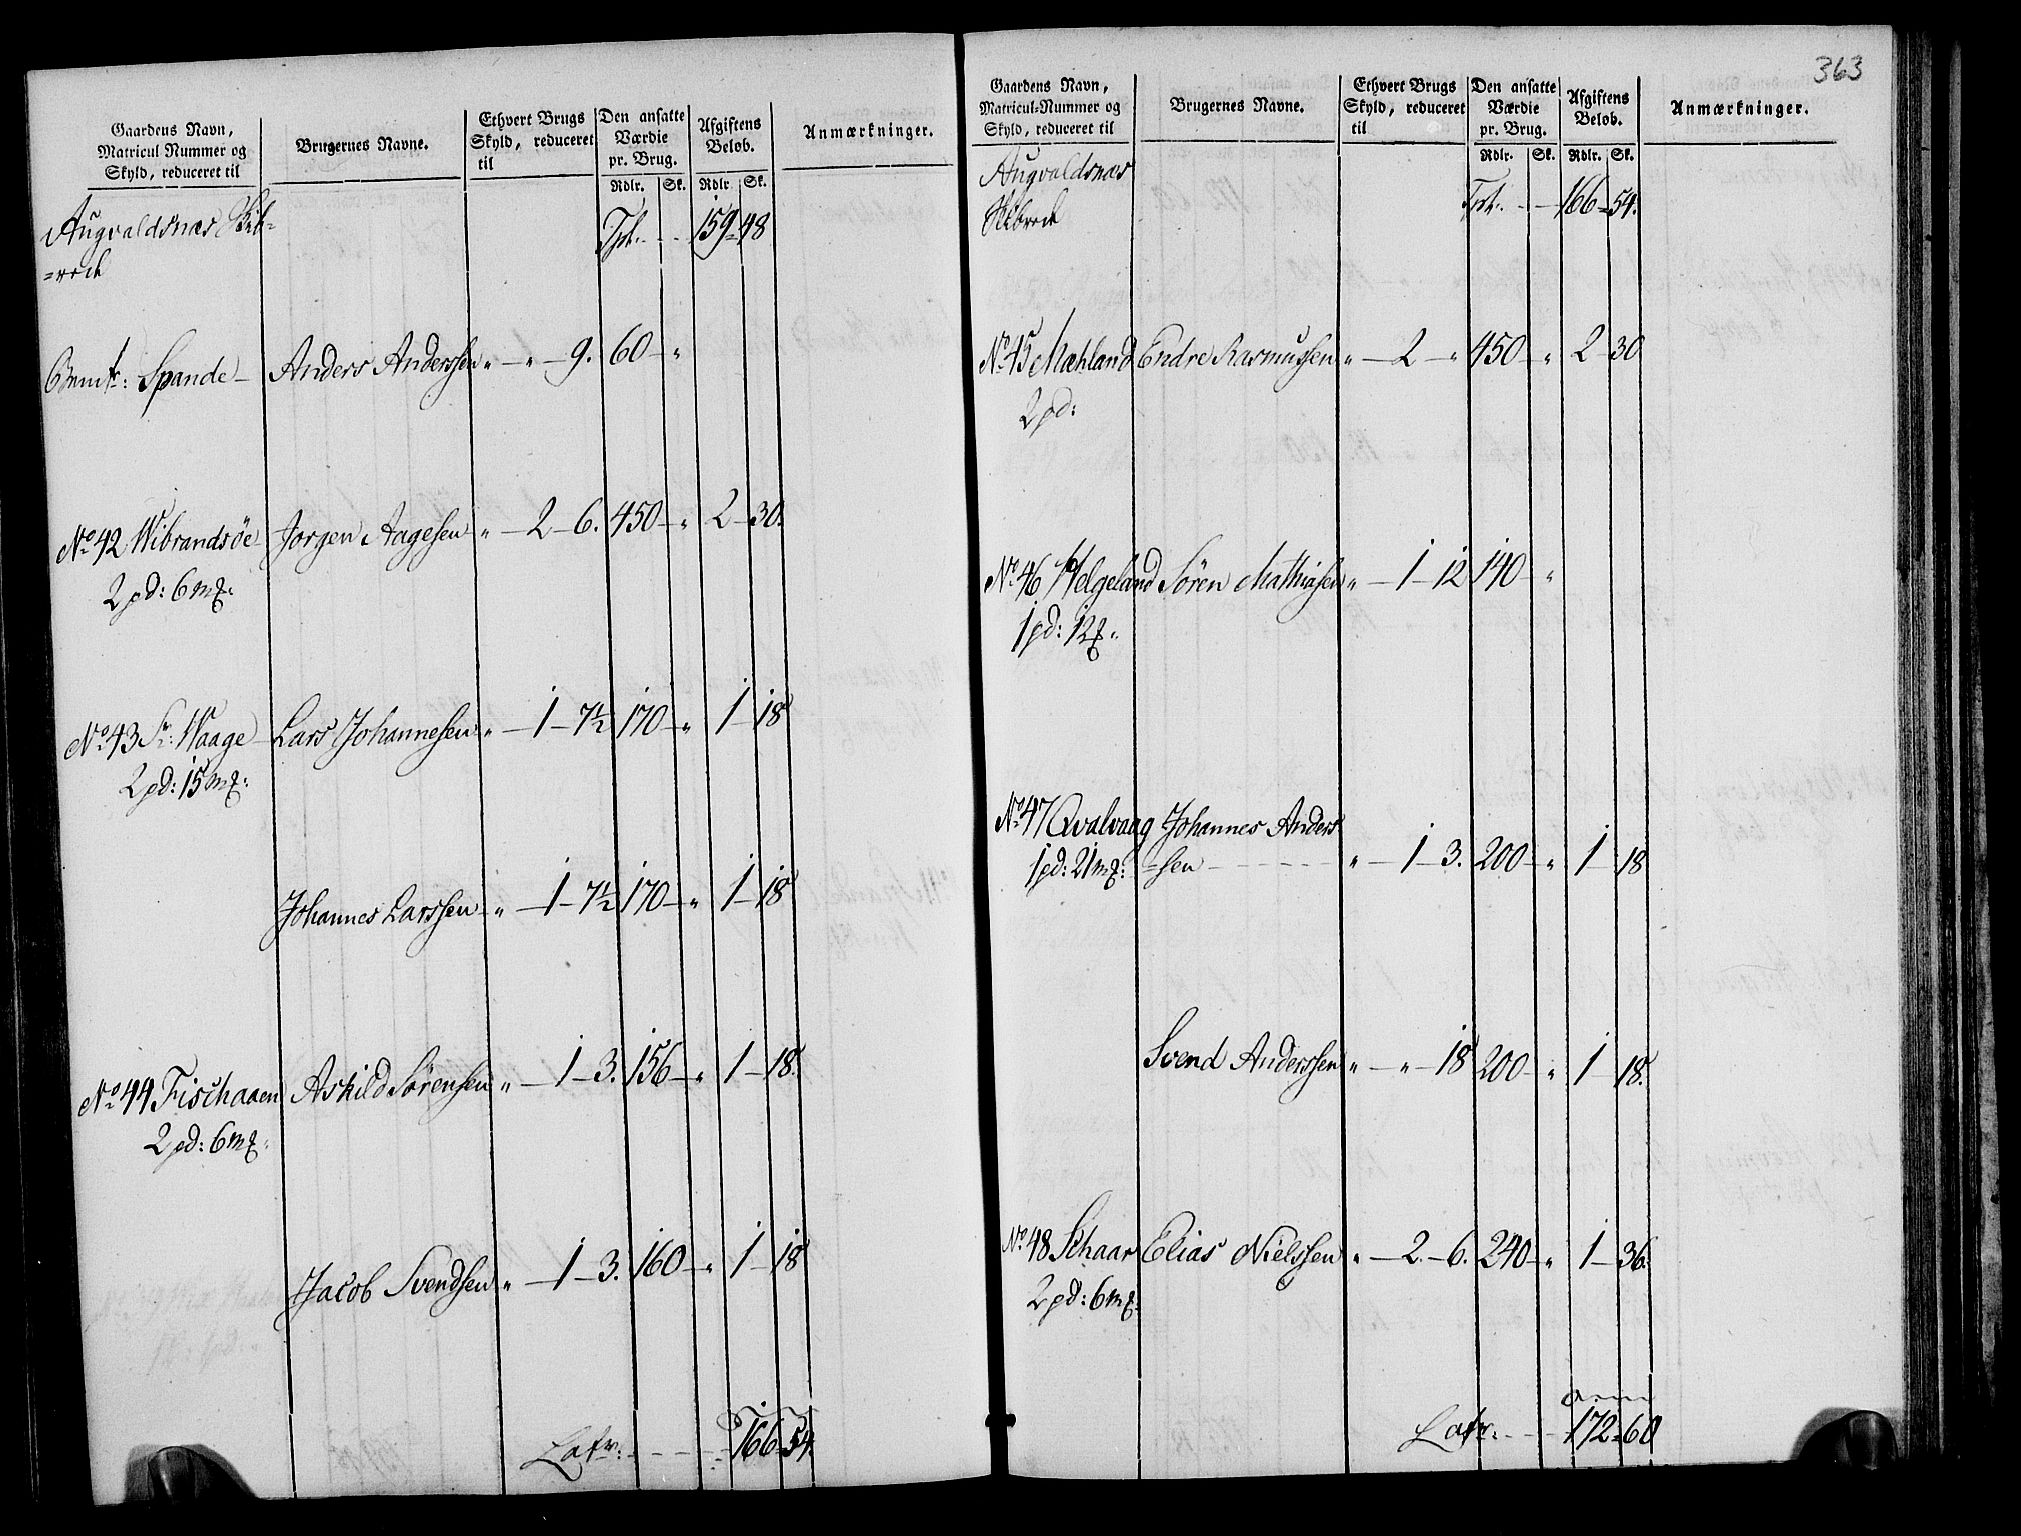 Gaardens Navn,
Matricul Nummer og
Skyld, reduceret til
Brugernes Navne.
Ethvert Brugs
Skyld, reduceret
til
Den ansatte
Værdie
pr. Brug.
Rdlr. Sk.
Afgiftens
Beløb.
Rdlr. Sk.
Anmærkninger.
Augvaldsnæs Skib=
=rede
Tpt: - - 159 - 48
Spande - Anders Anderssen „ - „ - 9. 60 - „
No 42 Wibrandsöe Jorgen Aagesen „ - 2 - 6. 450 - „ 2 - 30.
2 pd: 6 mk.
No 43 Sr: Waage - Lars Johannesen „ - 1 - 7½ 170 - „ 1 - 18
2 pd: 15 mk:
Johannes Larssen „ - 1 - 7½ 170 - „ 1 - 18
No 44 Fischaaen Askild Sörensen „ - 1 - 3. 156 - „ 1 - 18.
2 pd: 6 mk.
Jacob Svendsen „ - 1 - 3. 160 - „ 1 - 18
Latr: - - - - 166 - 54.
363
Gaardens Navn,
Matricul-Nummer og
Skyld, reduceret til
Brugernes Navne.
Ethvert Brugs
Skyld, reduceret
til
Den ansatte
Værdie
pr. Brug.
Rdlr. Sk.
Afgiftens
Beløb.
Rdlr. Sk.
Anmærkninger.
Augvaldsnæs
Skibrede
Tpt: - - 166 - 54.
No 45 Mæhland Endre Rasmussen „ - 2 - „ 450 - „ 2 - 30
2 pd:
No 46 Helgeland Sören Mathiasen „ - 1 - 12 140 - „
1 pd: 12 mk.
No 47 Qvalvaag Johannes Anders
1 pd: 21 mk: =sen - - - - „ - 1 - 3. 200 - „ 1 - 18
Svend Anderssen „ - „ - 18 200 - „ 1 - 18.
No 48 Schaar Elias Nielssen „ - 2 - 6. 240 - „ 1 - 36.
2 pd: 6 mk.
Latr: - - - 172 - 60